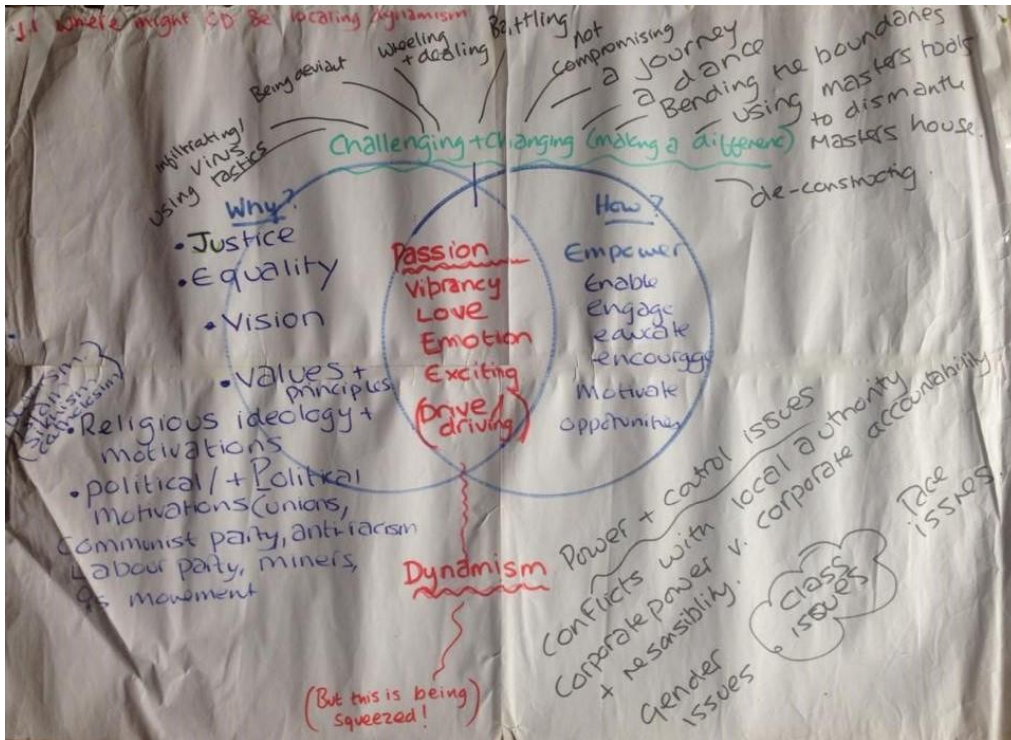 1.1 Where might CD be locating dynamism
Being deviant
Wheeling
+ dealing
Battling
not
compromising
a journey
a dance
Bending the boundaries
using masters tools
to dismantle
Masters house.
de-constructig.
infiltrating/
using virus
tactics
Challenging + changing (making a difference)
Why?
• Justice
• Equality
• Vision
• Values +
principles
• Religious ideology +
motivations
• political / + Political
motivations (unions,
Communist party, anti-racism
Labour party, miners,
movement
Passion
Vibrancy
Love
Emotion
Exciting
(Drive/
driving)
How?
Empower
Enable
engage
educate
encourage
Motivate
opportunities
Dynamism
(But this is being
squeezed!)
Power + control issues
Conflicts with local authority
Corporate power v. corporate accountability
+ resansiblity.
gender
issues
class
issues
Race
issues.